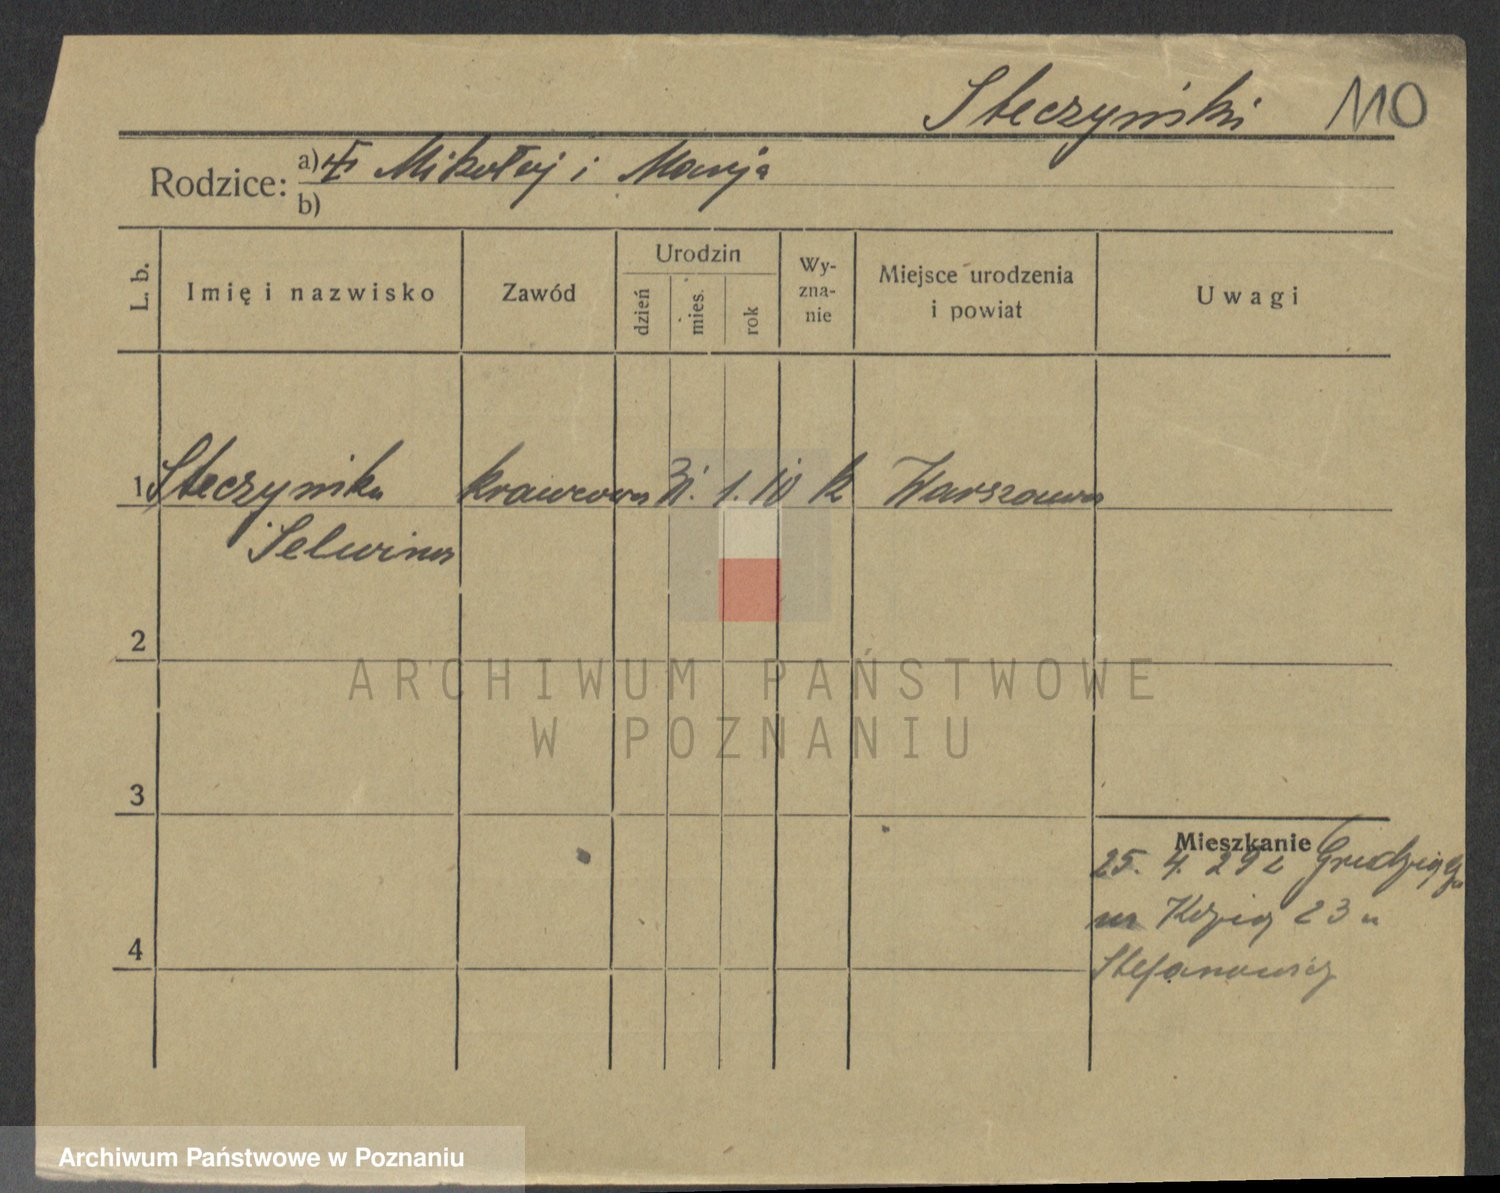 Steczyński 110
Rodzice: a) Mikołaj i Marja
b)
L. b.
Imię i nazwisko
Zawód
Urodzin
dzień
mies.
rok
Wy-
zna-
nie
Miejsce urodzenia
i powiat
Uwagi
1 Steczyńska krawcowa 31. 1. 10 k Warszawa
Selwina
2
ARCHIWUM PAŃSTWOWE
W POZNANIU
3
Mieszkanie
25. 4. 29 z
23 u
4
Archiwum Państwowe w Poznaniu